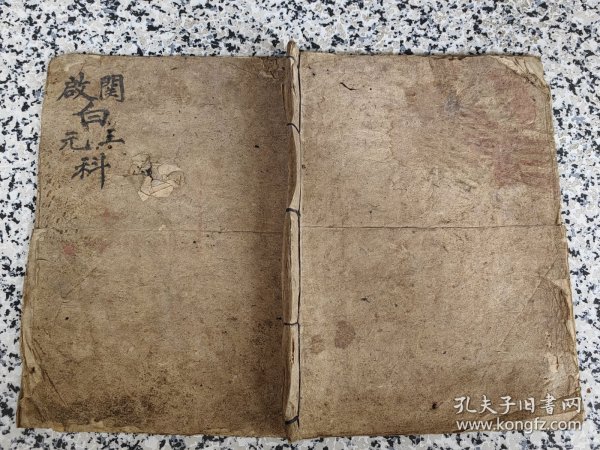 関 啟
白
三 元
科
孔夫子旧書网
www.kongfz.com